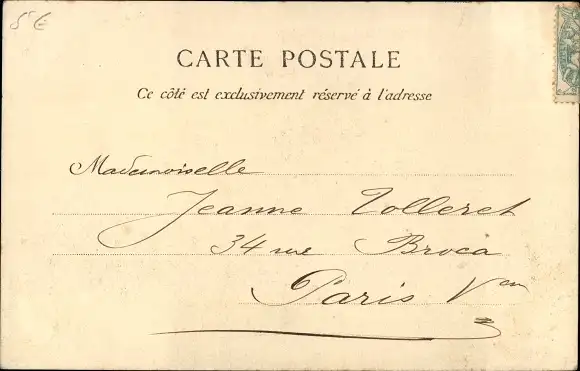 5 €
CARTE POSTALE
Ce côté est exclusivement réservé à l'adresse
Mademoiselle
Jeanne Tolleret
34 rue Broca
Paris Vm